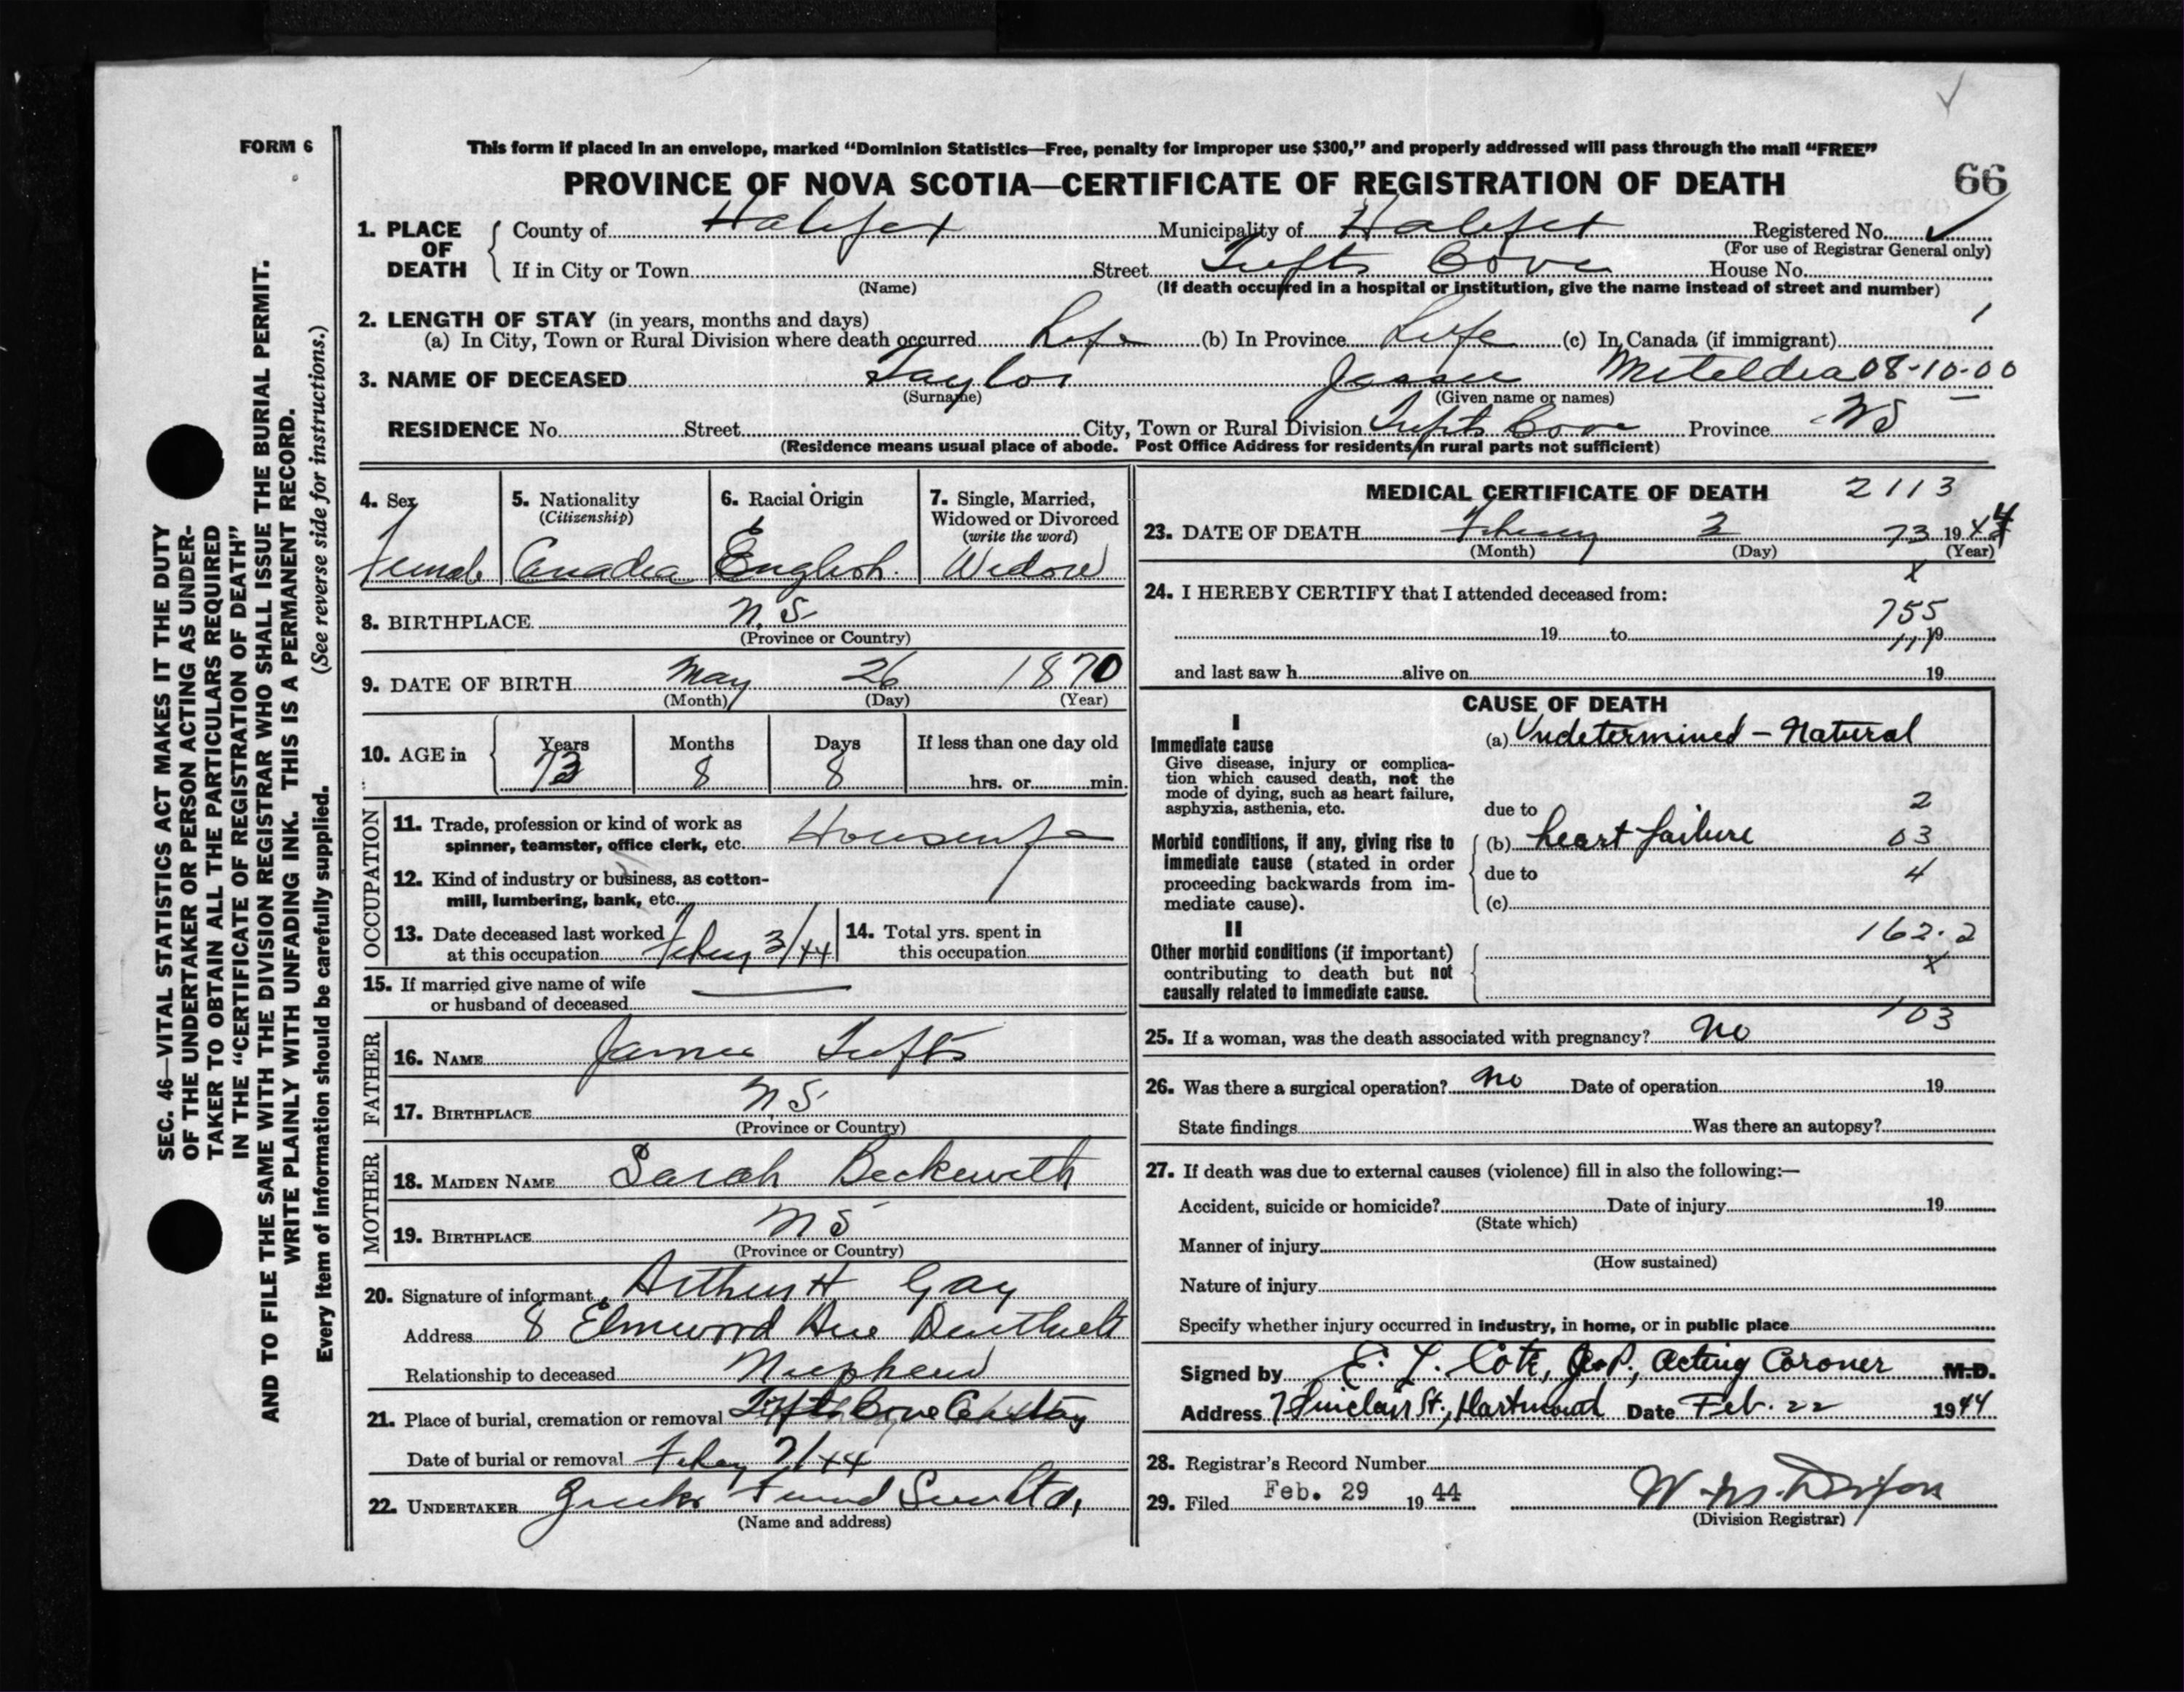 FORM 6
This form if placed in an envelope, marked “Dominion Statistics—Free, penalty for improper use $300,” and properly addressed will pass through the mail “FREE”
PROVINCE OF NOVA SCOTIA—CERTIFICATE OF REGISTRATION OF DEATH
66
1. PLACE OF DEATH County of Halifax Municipality of Halifax Registered No.
(For use of Registrar General only)
If in City or Town Street Tufts Cove House No.
(Name) (If death occurred in a hospital or institution, give the name instead of street and number)
2. LENGTH OF STAY (in years, months and days)
(a) In City, Town or Rural Division where death occurred Life (b) In Province Life (c) In Canada (if immigrant)
3. NAME OF DECEASED Taylor Jessie 08-10-00
(Surname) (Given name or names)
RESIDENCE No. Street City, Town or Rural Division Tufts Cove Province NS
(Residence means usual place of abode. Post Office Address for residents in rural parts not sufficient)
4. Sex
Female
5. Nationality
(Citizenship)
Canadia
6. Racial Origin
English.
7. Single, Married,
Widowed or Divorced
(write the word)
Widow
8. BIRTHPLACE N.S.
(Province or Country)
9. DATE OF BIRTH May 26 1870
(Month) (Day) (Year)
10. AGE in
Years Months Days If less than one day old
73 8 8 hrs. or min.
OCCUPATION
11. Trade, profession or kind of work as
spinner, teamster, office clerk, etc. Housewife
12. Kind of industry or business, as cotton-
mill, lumbering, bank, etc.
13. Date deceased last worked
at this occupation Febry 3/44
14. Total yrs. spent in
this occupation
15. If married give name of wife
or husband of deceased
FATHER
16. NAME James Tufts
17. BIRTHPLACE N.S.
(Province or Country)
MOTHER
18. MAIDEN NAME Sarah Beckewith
19. BIRTHPLACE NS
(Province or Country)
20. Signature of informant Arthur H. Gay
Address 8 Elmwood Ave
Relationship to deceased Nuephew
21. Place of burial, cremation or removal Tufts Cove
Date of burial or removal Febry 7/44
22. UNDERTAKER Ltd,
(Name and address)
MEDICAL CERTIFICATE OF DEATH 2113
23. DATE OF DEATH 3 73 1944
(Month) (Day) (Year)
x
24. I HEREBY CERTIFY that I attended deceased from:
755
19 to 19
111
and last saw h alive on 19
CAUSE OF DEATH
I
Immediate cause
Give disease, injury or complica-
tion which caused death, not the
mode of dying, such as heart failure,
asphyxia, asthenia, etc.
(a) Undetermined – Natural
due to 2
Morbid conditions, if any, giving rise to
immediate cause (stated in order
proceeding backwards from im-
mediate cause).
(b) heart failure 03
due to 4
(c)
II
Other morbid conditions (if important)
contributing to death but not
causally related to immediate cause.
162.2
x
103
25. If a woman, was the death associated with pregnancy? no
26. Was there a surgical operation? no Date of operation 19
State findings Was there an autopsy?
27. If death was due to external causes (violence) fill in also the following:—
Accident, suicide or homicide? Date of injury 19
(State which)
Manner of injury
(How sustained)
Nature of injury
Specify whether injury occurred in industry, in home, or in public place
Signed by E. L. Cote, J.P., Acting Coroner M.D.
Address 7 Sinclair St., Dartmouth Date Feb. 22 1944
28. Registrar's Record Number
29. Filed Feb. 29 1944 W. M. Dixon
(Division Registrar)
SEC. 46—VITAL STATISTICS ACT MAKES IT THE DUTY
OF THE UNDERTAKER OR PERSON ACTING AS UNDER-
TAKER TO OBTAIN ALL THE PARTICULARS REQUIRED
IN THE “CERTIFICATE OF REGISTRATION OF DEATH”
AND TO FILE THE SAME WITH THE DIVISION REGISTRAR WHO SHALL ISSUE THE BURIAL PERMIT.
WRITE PLAINLY WITH UNFADING INK. THIS IS A PERMANENT RECORD.
Every item of information should be carefully supplied. (See reverse side for instructions.)